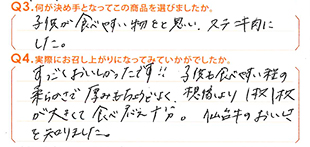 Q3.何が決め手となってこの商品を選びましたか。
子供が食べやすい物をと思い、ステーキ肉に
した。
Q4.実際にお召し上がりになってみていかがでしたか。
すっごくおいしかったです!! 子供も食べやすい程の
柔らかさで厚みもちょうどよく、想像より1枚1枚
が大きくて食べごたえ十分。仙台牛のおいしさ
を知りました。